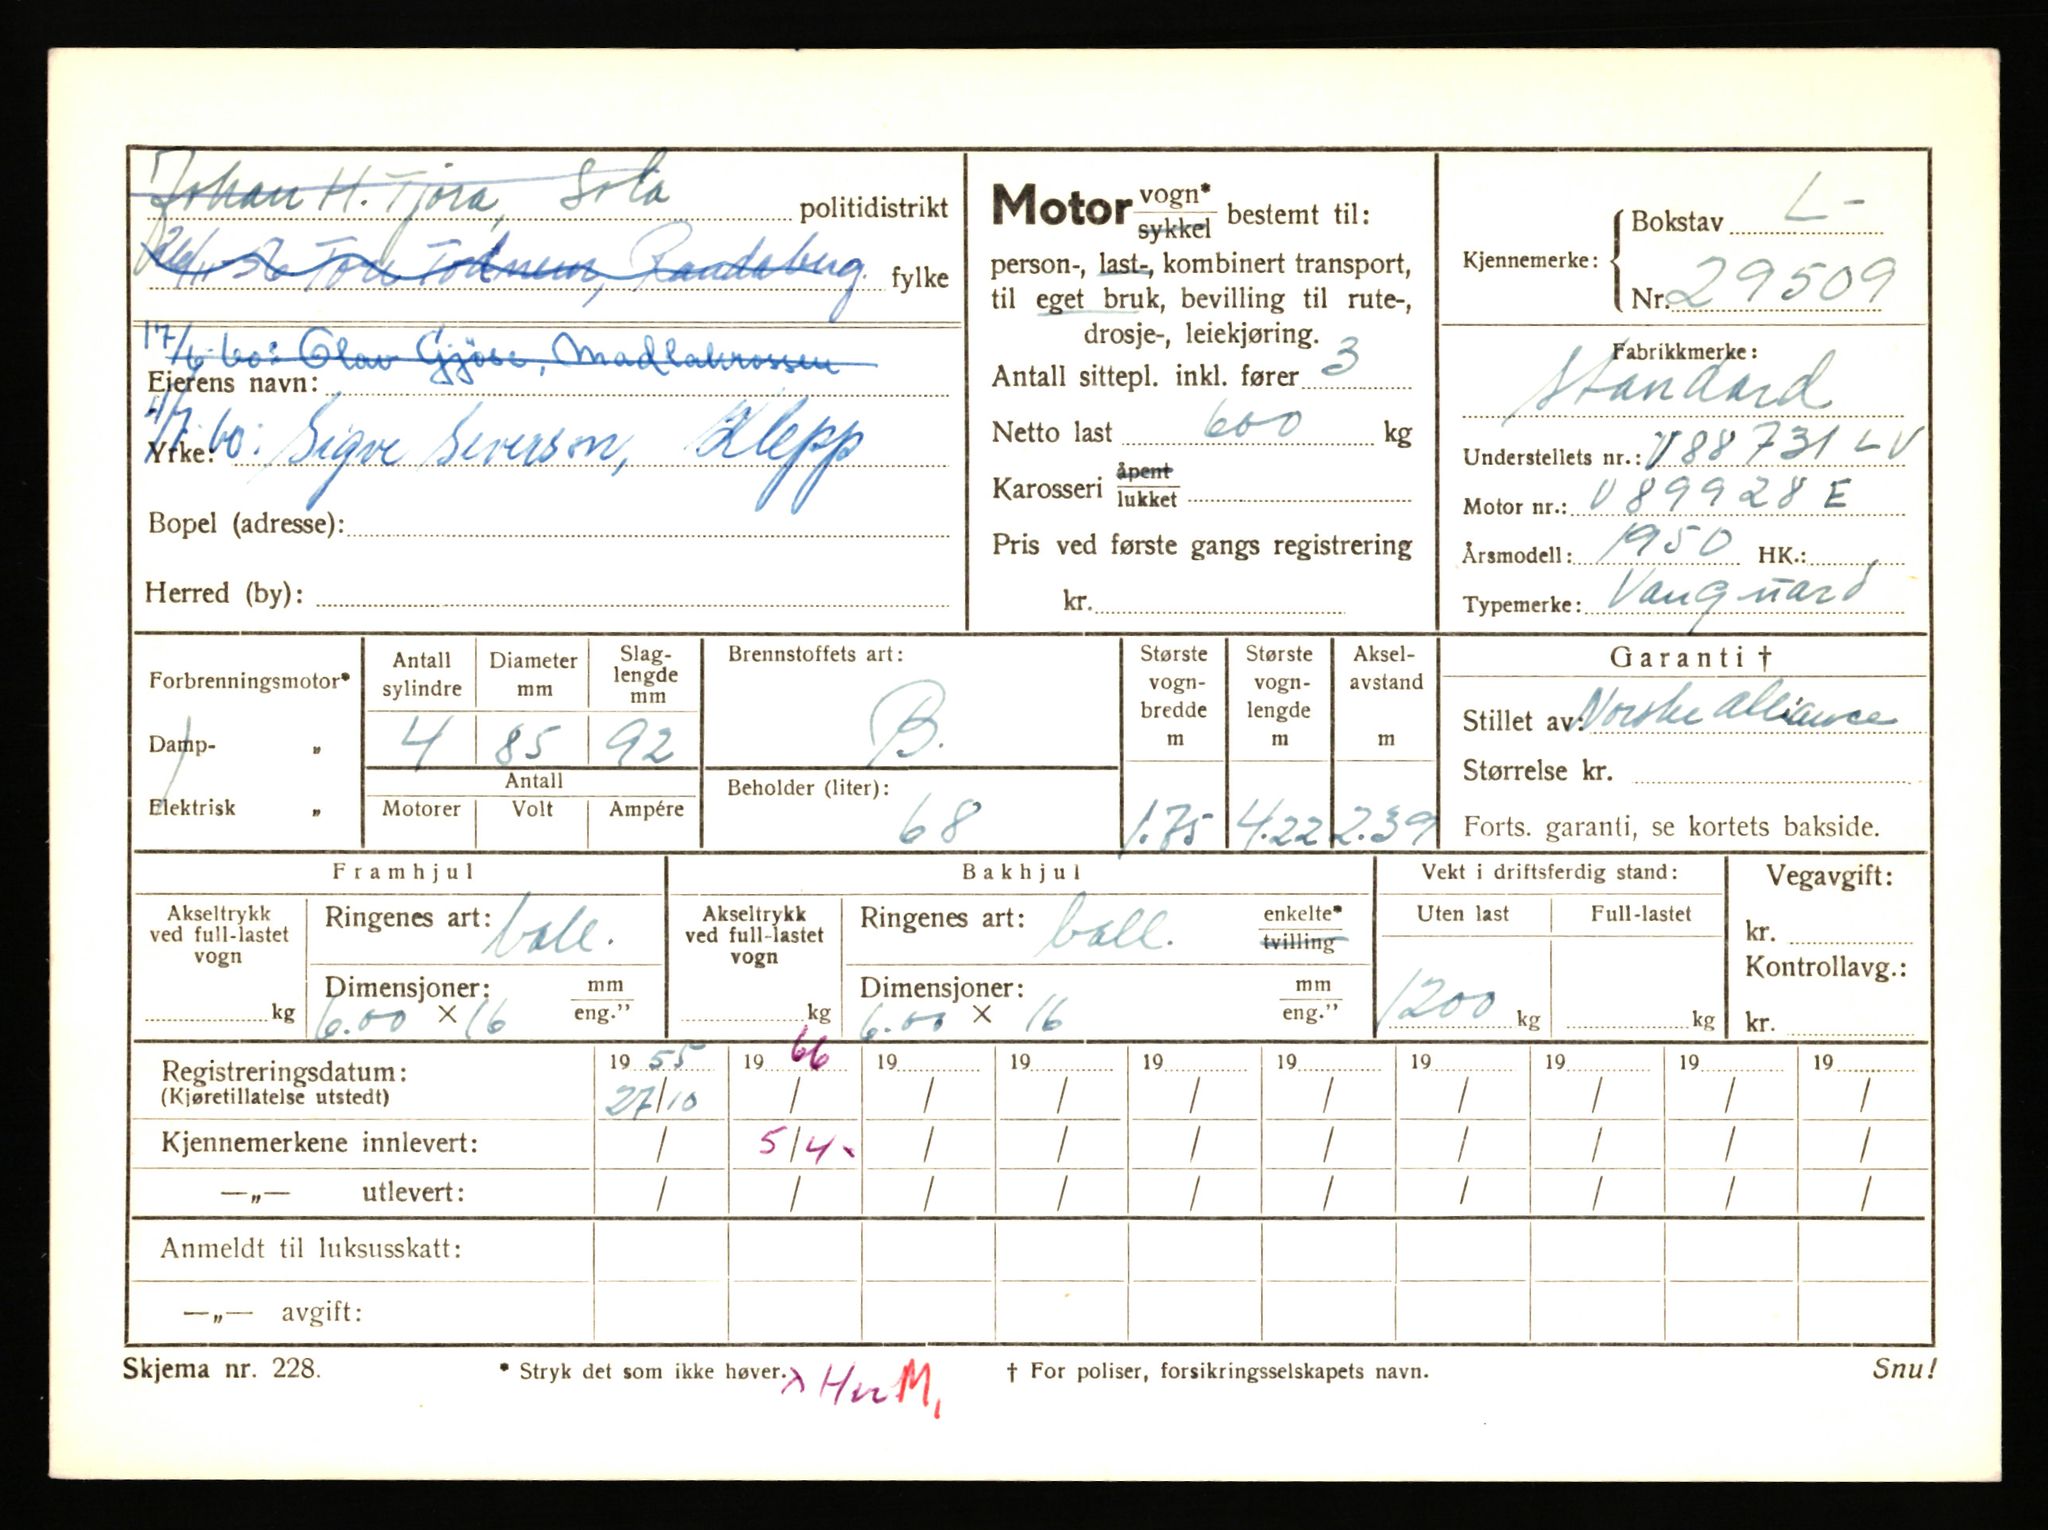 Johan H. Tjora, Sola politidistrikt
Tore Todnem, Randaberg. fylke
17/6-60: Olav Gjöse, Madlakrossen
Eierens navn:
4/7-60: Sigve Severson, Klepp
Yrke:
Bopel (adresse):
Herred (by):
Motor vogn* sykkel bestemt til:
person-, last-, kombinert transport,
til eget bruk, bevilling til rute-,
drosje-, leiekjøring.
Antall sittepl. inkl. fører 3
Netto last 600 kg
Karosseri åpent lukket
Pris ved første gangs registrering
kr.
Kjennemerke: Bokstav L-
Nr. 29509
Fabrikkmerke:
Standard
Understellets nr.: V88731LV
Motor nr.: V89928E
Årsmodell: 1950 HK.:
Typemerke: Vanguard
Forbrenningsmotor*
Damp- „
Elektrisk „
Antall sylindre Diameter mm Slag-lengde mm
4 85 92
Antall
Motorer Volt Ampére
Brennstoffets art:
B.
Beholder (liter):
68
Største vogn-bredde m Største vogn-lengde m Aksel-avstand m
1.75 4.22 2.39
Garanti †
Stillet av: Norske Alliance
Størrelse kr.
Forts. garanti, se kortets bakside.
Framhjul
Akseltrykk ved full-lastet vogn
kg
Ringenes art: ball.
Dimensjoner: mm eng."
6.00 × 16
Bakhjul
Akseltrykk ved full-lastet vogn
kg
Ringenes art: ball. enkelte* tvilling
Dimensjoner: mm eng."
6.00 × 16
Vekt i driftsferdig stand:
Uten last Full-lastet
1200 kg kg
Vegavgift:
kr.
Kontrollavg.:
kr.
Registreringsdatum: 19 55 19 66 19 19 19 19 19 19 19 19
(Kjøretillatelse utstedt) 27/10 / / / / / / / / /
Kjennemerkene innlevert: / 5/4- / / / / / / / /
—„— utlevert: / / / / / / / / / /
Anmeldt til luksusskatt:
—„— avgift:
Skjema nr. 228. * Stryk det som ikke høver. M, † For poliser, forsikringsselskapets navn. Snu!